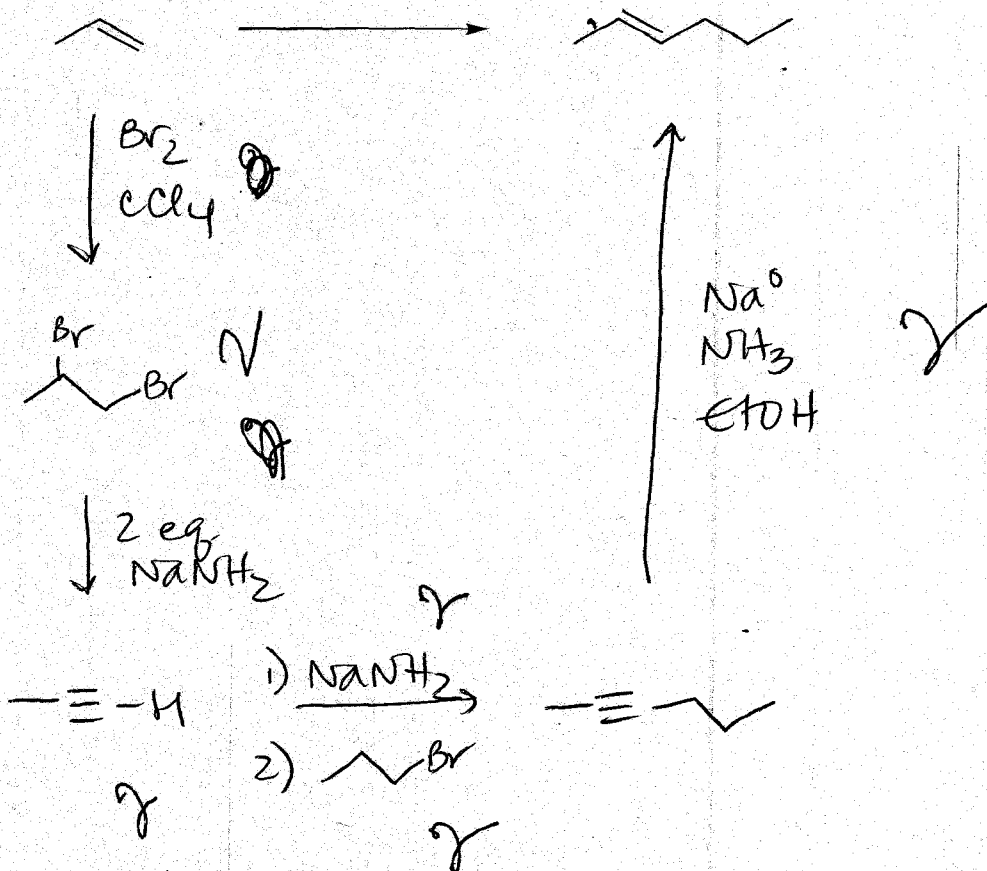 Br2
CCl4
Br
Br
2 eq.
NaNH2
Na°
NH3
EtOH
≡-H
1) NaNH2
2) Br
≡